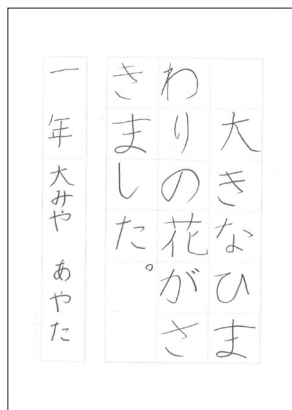 大きなひま
わりの花がさ
きました。
一年 大みや あやた